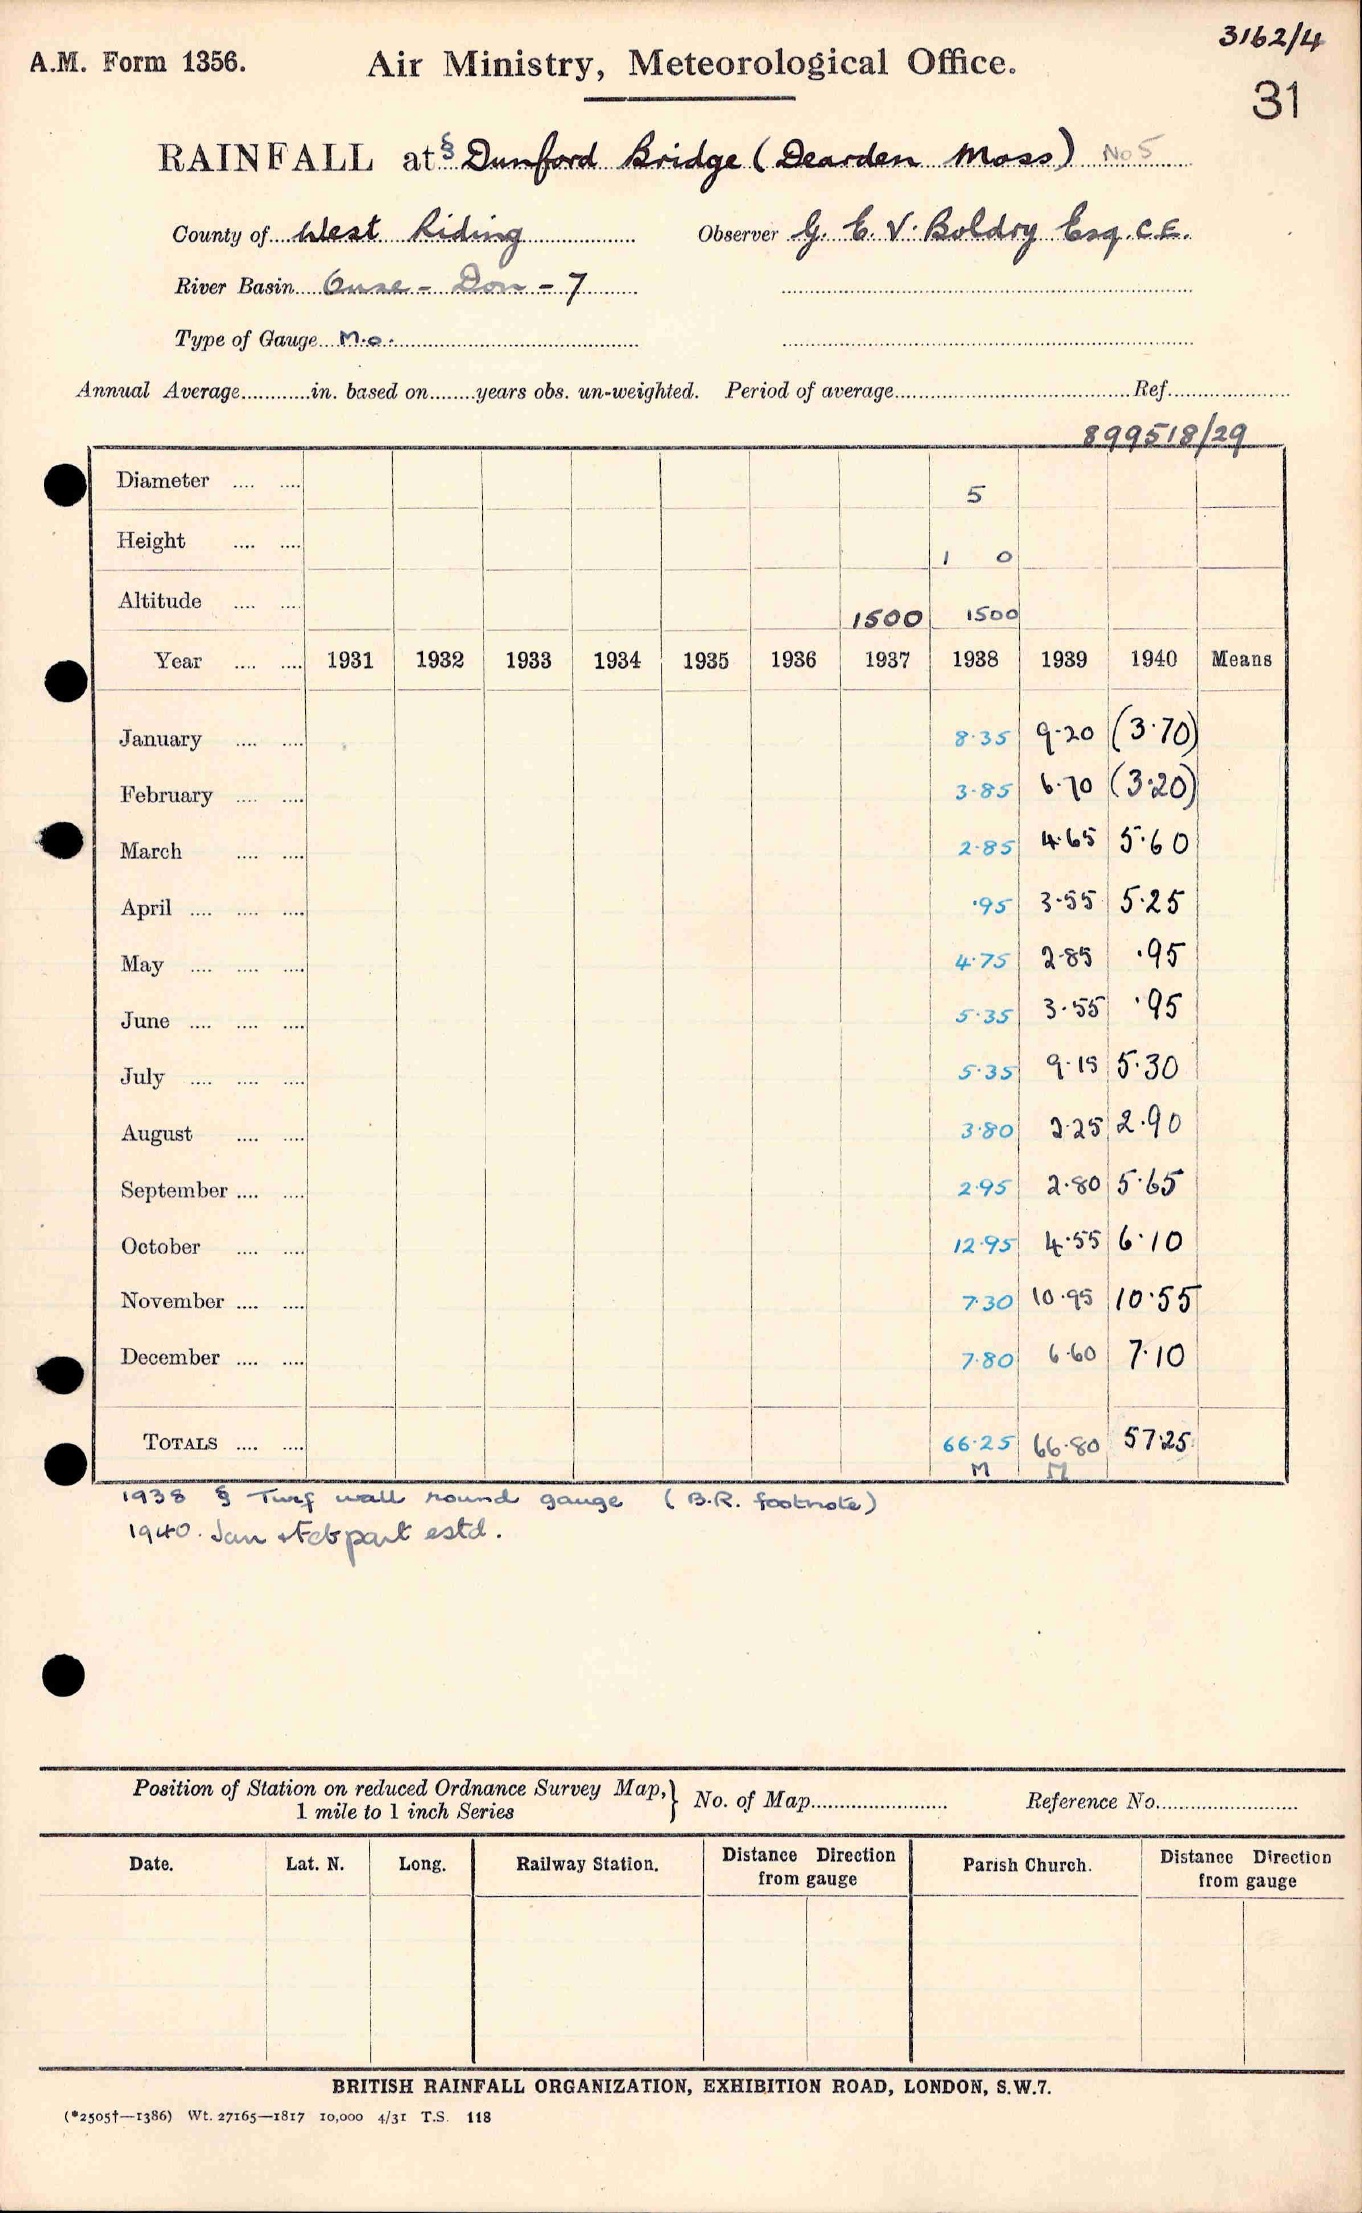 3162/4
A.M. Form 1356. Air Ministry, Meteorological Office.
31
RAINFALL at § Dunford Bridge (Dearden Moss) No 5
County of West Riding Observer G. E. V. Boldry Esq. C.E.
River Basin Ouse - Don - 7
Type of Gauge M.O.
Annual Average............in. based on........years obs. un-weighted. Period of average........................................Ref......................
899518/29
Diameter .... .... 5
Height .... .... 1 0
Altitude .... .... 1500 1500
Year .... .... 1931 1932 1933 1934 1935 1936 1937 1938 1939 1940 Means
January .... .... 8.35 9.20 (3.70)
February .... .... 3.85 6.70 (3.20)
March .... .... 2.85 4.65 5.60
April .... .... .... .95 3.55 5.25
May .... .... .... 4.75 2.85 .95
June .... .... .... 5.35 3.55 .95
July .... .... .... 5.35 9.15 5.30
August .... .... 3.80 2.25 2.90
September .... .... 2.95 2.80 5.65
October .... .... 12.95 4.55 6.10
November .... .... 7.30 10.95 10.55
December .... .... 7.80 6.60 7.10
TOTALS .... .... 66.25 66.80 57.25
M M
1938 § Turf wall round gauge (B.R. footnote)
1940. Jan & Feb part estd.
Position of Station on reduced Ordnance Survey Map, } No. of Map........................ Reference No.........................
1 mile to 1 inch Series
Date. Lat. N. Long. Railway Station. Distance Direction from gauge Parish Church. Distance Direction from gauge
BRITISH RAINFALL ORGANIZATION, EXHIBITION ROAD, LONDON, S.W.7.
(*2505†—1386) Wt. 27165—1817 10,000 4/31 T.S. 118